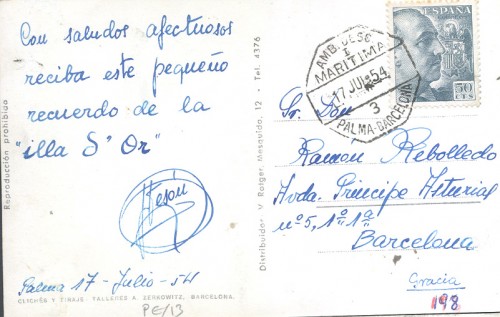 Con saludos afectuosos
reciba este pequeño
recuerdo de la
"illa D' Or"
Palma 17-Julio-54
CLICHÉS Y TIRAJE. TALLERES A. ZERKOWITZ, BARCELONA.
PE/13
Reproducción prohibida
Distribuidor V. Rotger. Mesquida, 12 - Tel. 4376
AMB. DESC
I
MARITIMA
17 JUL 54
3
PALMA-BARCELONA
ESPAÑA
50
CTS
Sr. Don
Ramon Rebolledo
Avda. Principe Asturias
nº 5, 1º 1ª
Barcelona
Gracia
198